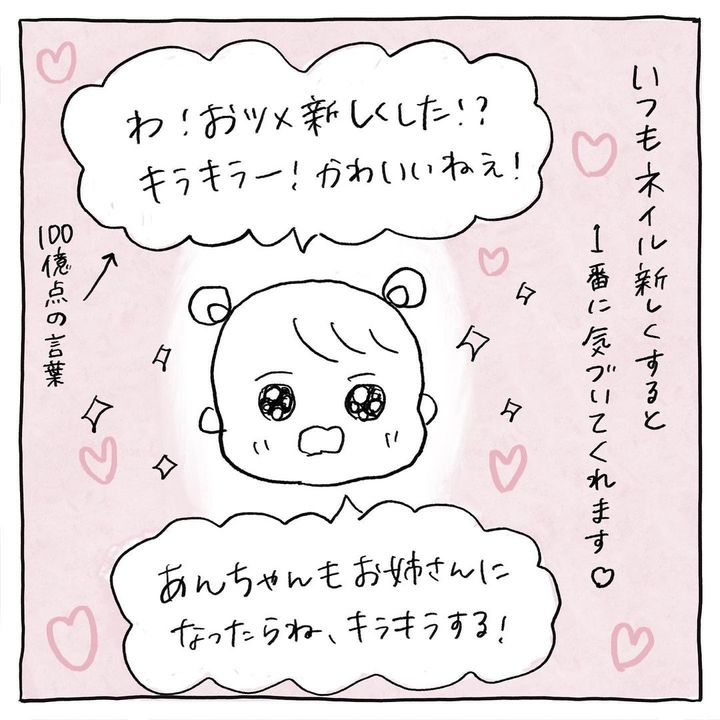 いつもネイル新しくすると
1番に気づいてくれます♡
わ!おツメ新しくした!?
キラキラー!かわいいねぇ!
100億点の言葉
あんちゃんもお姉さんに
なったらね、キラキラする!